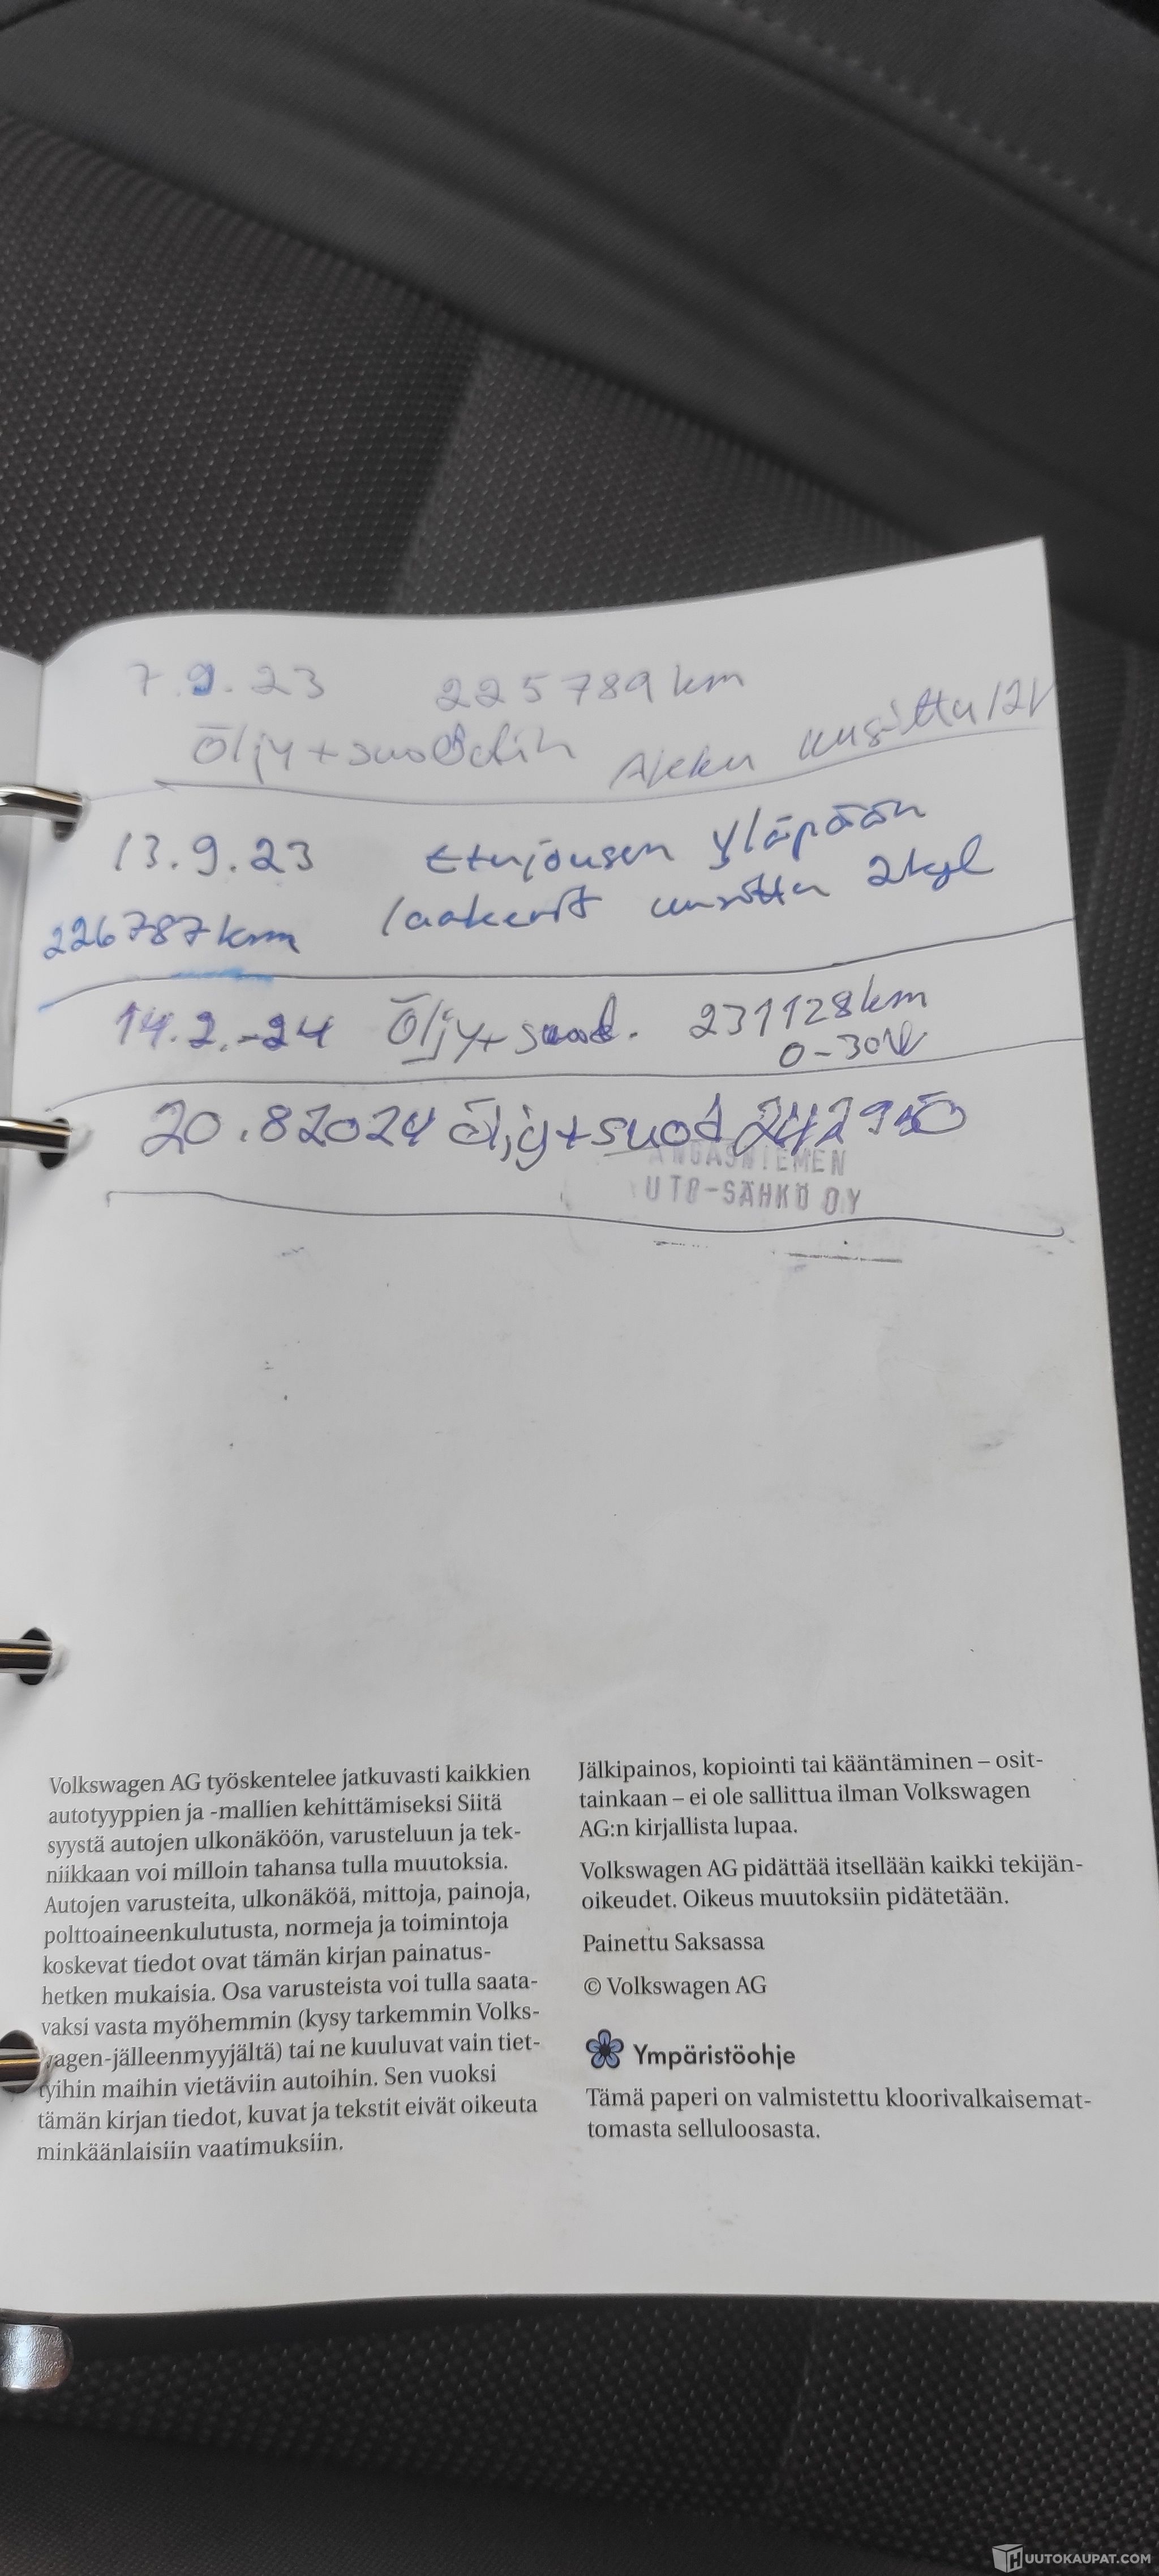 7.9.23 225789 km
Öljy + suodatin Akku uusittu 12V
13.9.23 Etujousen yläpään
226787 km laakerit uusittu 2kpl
14.2.-24 Öljy+ suod. 231128 km
0-30W
20.82024 öljy+suod
ANGASNIEMEN
UTO-SÄHKÖ OY
Volkswagen AG työskentelee jatkuvasti kaikkien
autotyyppien ja -mallien kehittämiseksi Siitä
syystä autojen ulkonäköön, varusteluun ja tek-
niikkaan voi milloin tahansa tulla muutoksia.
Autojen varusteita, ulkonäköä, mittoja, painoja,
polttoaineenkulutusta, normeja ja toimintoja
koskevat tiedot ovat tämän kirjan painatus-
hetken mukaisia. Osa varusteista voi tulla saata-
vaksi vasta myöhemmin (kysy tarkemmin Volks-
wagen-jälleenmyyjältä) tai ne kuuluvat vain tiet-
tyihin maihin vietäviin autoihin. Sen vuoksi
tämän kirjan tiedot, kuvat ja tekstit eivät oikeuta
minkäänlaisiin vaatimuksiin.
Jälkipainos, kopiointi tai kääntäminen – osit-
tainkaan – ei ole sallittua ilman Volkswagen
AG:n kirjallista lupaa.
Volkswagen AG pidättää itsellään kaikki tekijän-
oikeudet. Oikeus muutoksiin pidätetään.
Painettu Saksassa
© Volkswagen AG
Ympäristöohje
Tämä paperi on valmistettu kloorivalkaisemat-
tomasta selluloosasta.
HUUTOKAUPAT.COM